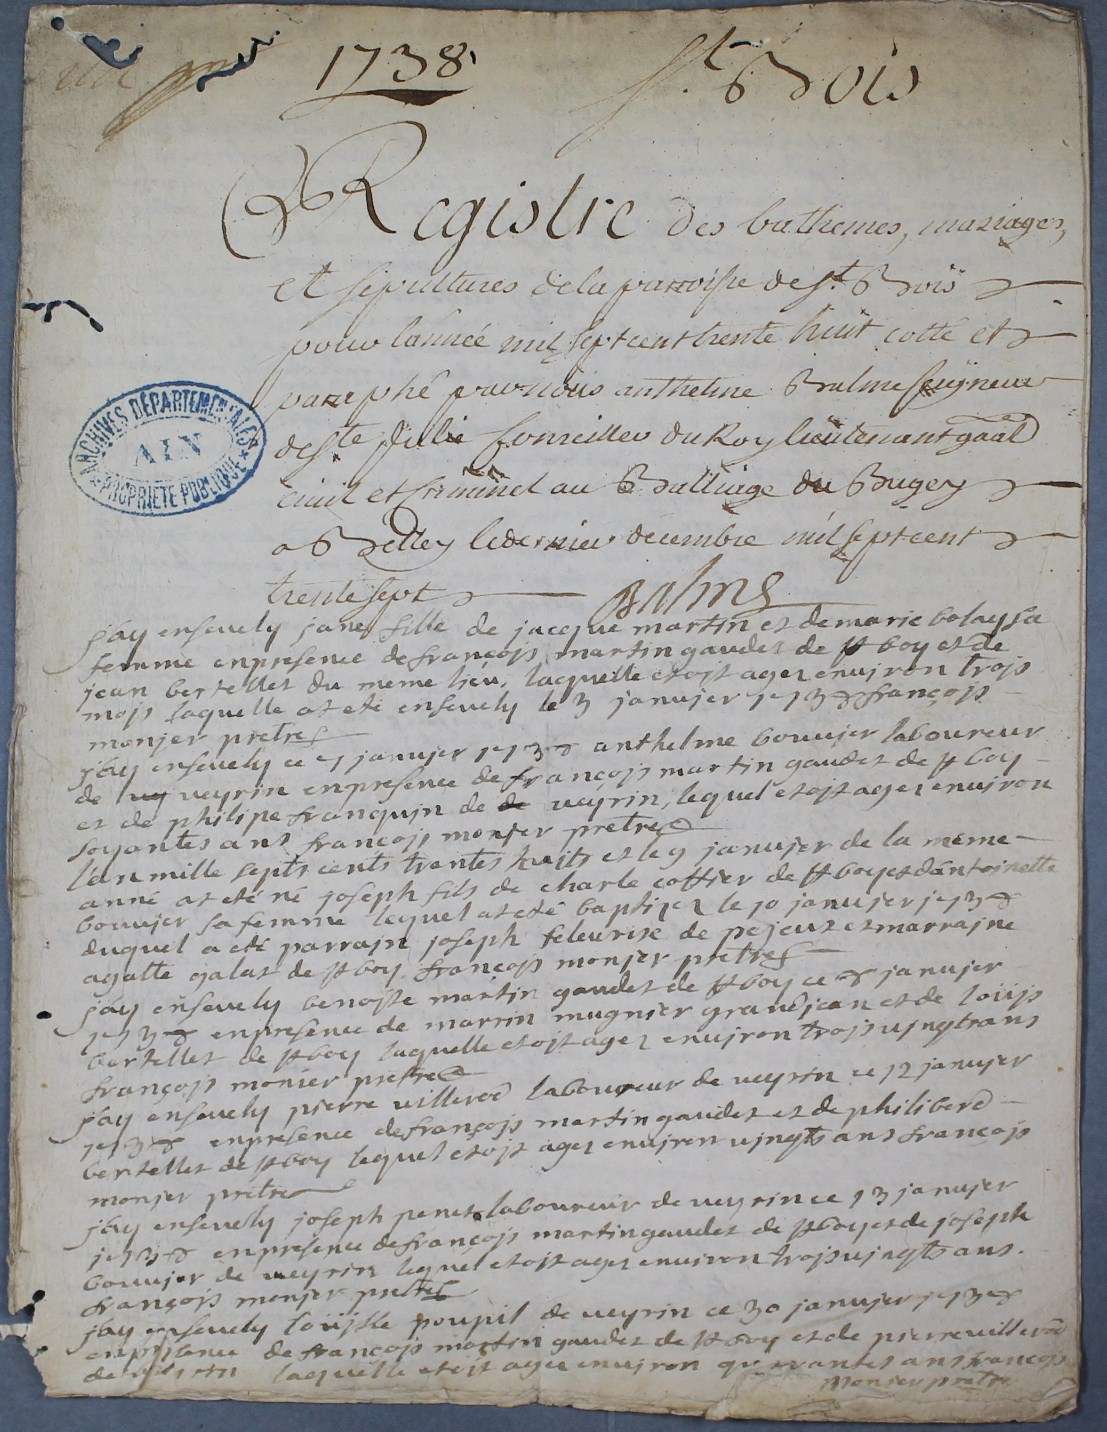 1738
St Bois
Registre des bathemes, mariages,
et sepultures de la parroisse de St Bois
pour lannée mil sept cent trente huit cotté et
parrephé par nous anthelme Balme seigneur
de Ste Julie Conseiller du Roy lieutenant gāal
civil et criminel au Balliage du Bugey
a Belley le dernier decembre mil sept cent
trente sept Balme
ARCHIVES DÉPARTEMENTALES
AIN
PROPRIÉTÉ PUBLIQUE
jay ensevely jane fille de jacque martin et de marie bolay sa
femme en présence de françojs martin gaudet de st boy et de
jean bertellet du meme lieu, laquelle etoit agez environ trojs
mojs laquelle at eté ensevely le 3 janvjer 1738 françojs
monjer pretre
jay ensevely ce 7 janvjer 1738 anthelme bouvjer laboureur
de veyrin en presence de françojs martin gaudet de st boy
et de philipe franquin de veyrin, lequel etoit agez environ
soyantes ans françojs monjer pretre
l'an mille septs cents trentes huits et le 9 janvjer de la meme
anné at eté né joseph fils de charle coffier de st boy et dantoinette
bouvjer sa femme lequel at eté baptizez le 10 janvjer 1738
duquel a eté parrajn joseph feleurise de pejeux et marrajne
agatte galat de st boy françojs monjer pretre
jay ensevely benojte martin gaudet de st boy ce 8 janvjer
1738 en presence de martin mugnier grandjean et de louijs
bertellet de st boy laquelle etoit agez environ trojs vjngts ans
françojs monier pretre
jay ensevely pierre villerod laboureur de veyrin ce 12 janvjer
1738 en presence de françojs martin gaudet et de philiberd
bertellet de st boy lequel etoit agez environ vjngts ans françojs
monjer pretre
jay ensevely joseph penet laboureur de veyrin ce 13 janvjer
1738 en présence de françojs martin gaudet de st boy et de joseph
bouvjer de veyrin lequel etoit agez environ trojs vjngts ans.
françojs monjer pretre
jay ensevely louijse poupil de veyrin ce 30 janvjer 1738
en présence de françojs martin gaudet de st boy et de pierre villerod
de veyrin laquelle etoit agée environ quarantes ans françojs
monjer pretre